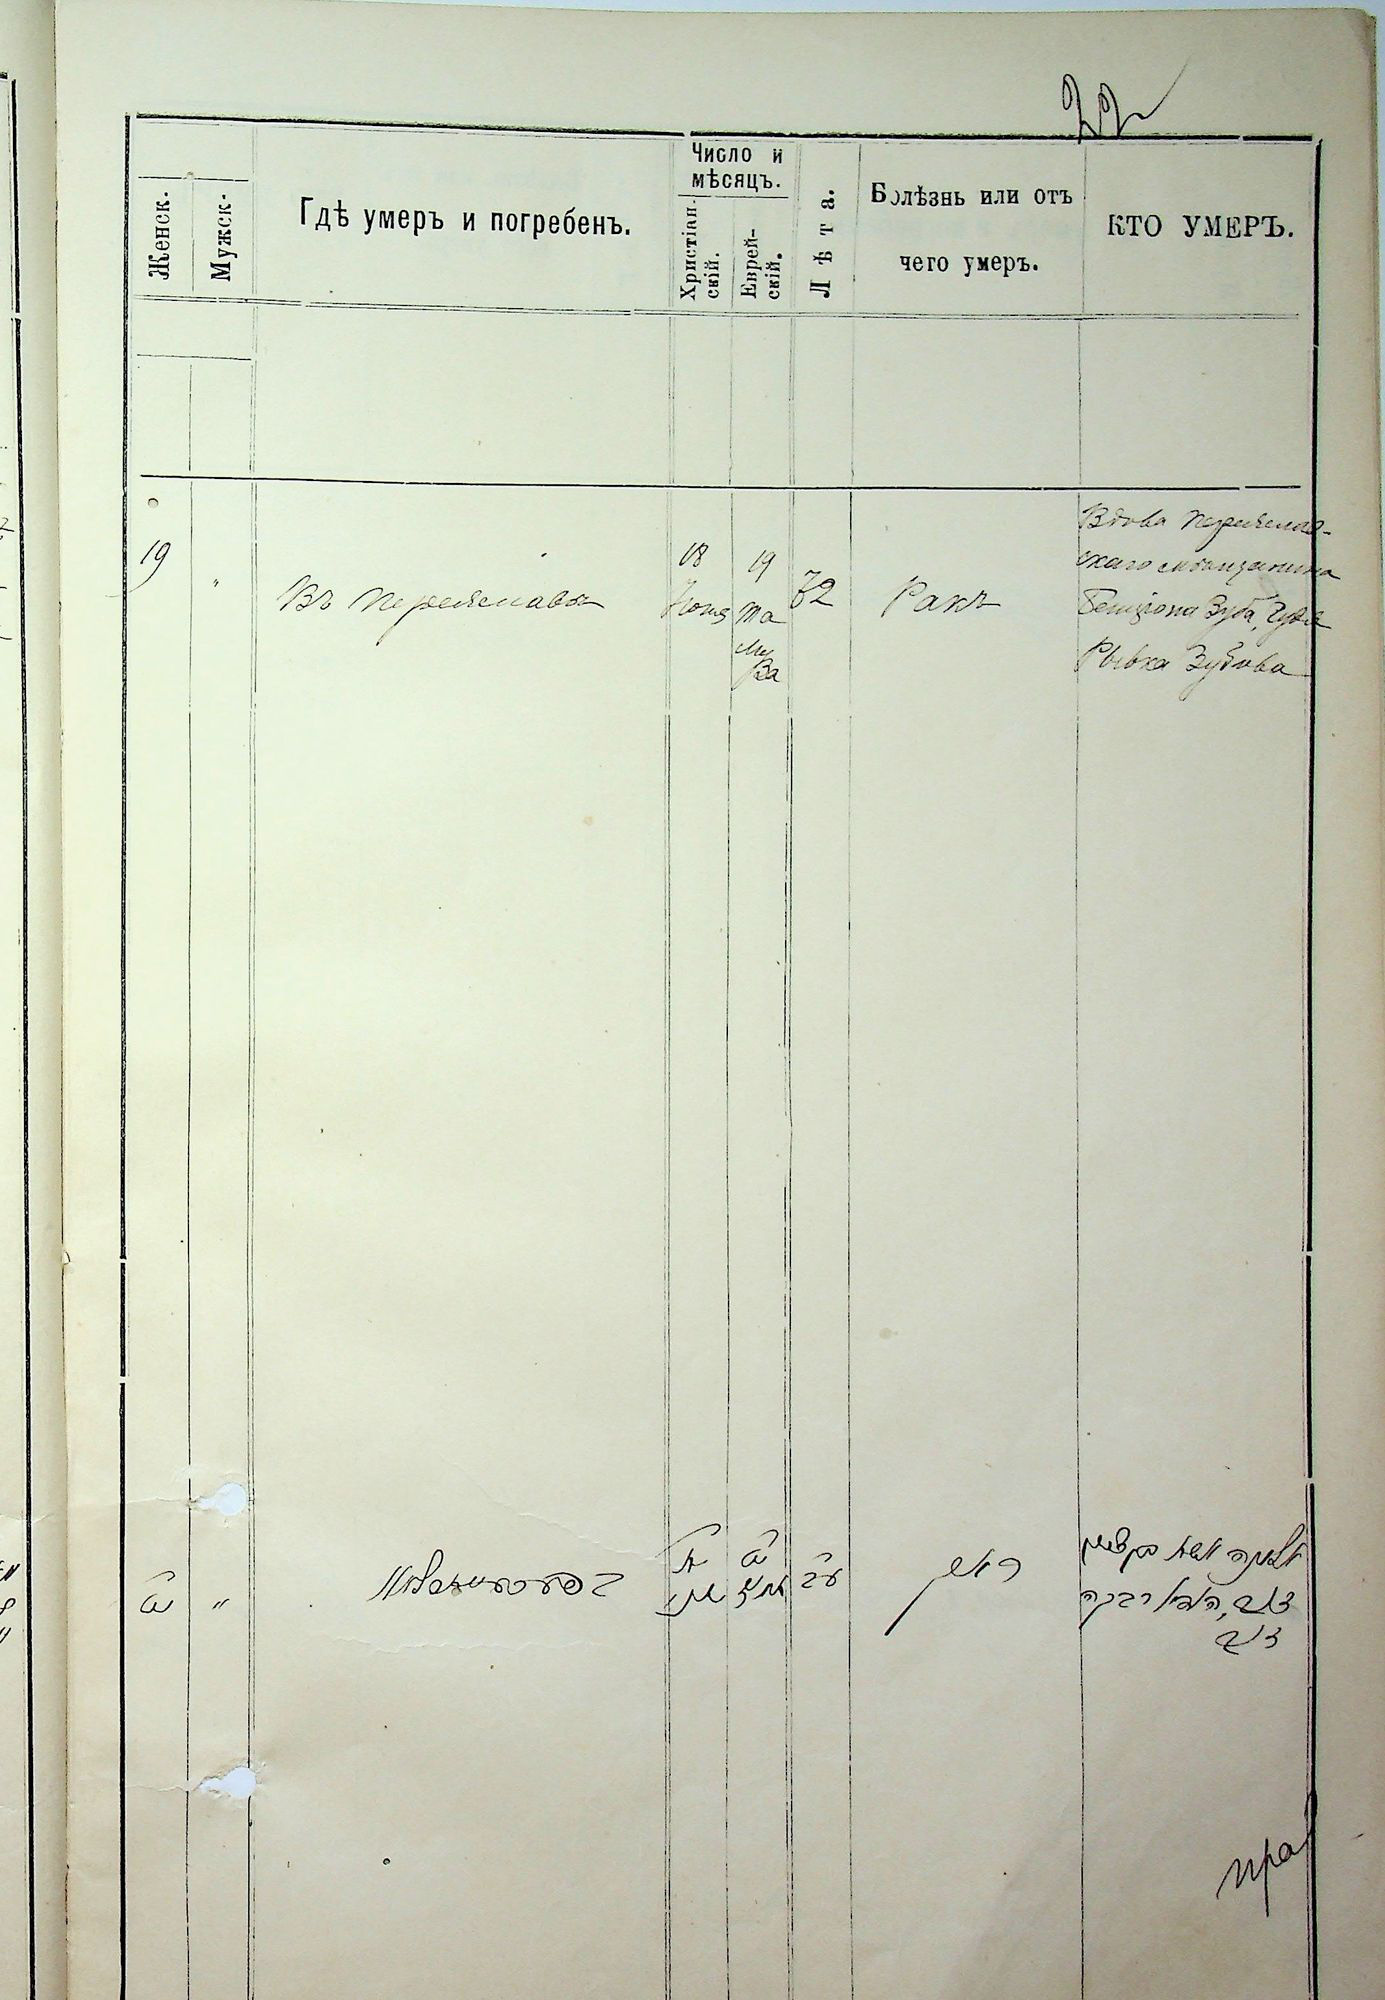 22
Женск.
Мужск.
Гдѣ умеръ и погребенъ.
Число и
мѣсяцъ.
Христіан-
скій.
Еврей-
скій.
Лѣта.
Болѣзнь или отъ
чего умеръ.
КТО УМЕРЪ.
19
"
Въ Переяславѣ
18
Іюня
19
Та
му
за
72
Ракъ
Вдова Переяслав-
скаго мѣщанина
Бенціона Зуба,
Рывка Зубова
יט
"
יט
תמוז
עב
ראק
אלמנה
רבקה